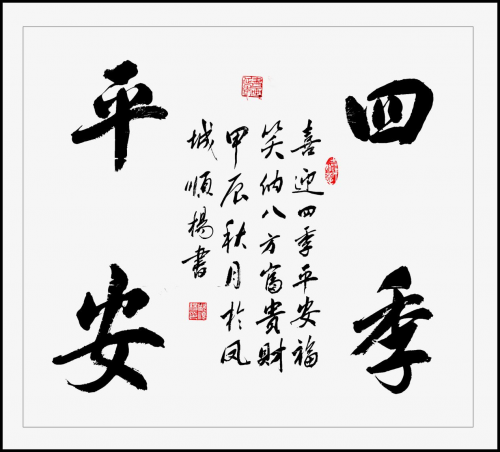 四季
平安
喜迎四季平安福
笑纳八方富貴財
甲辰秋月於凤
城順楊書